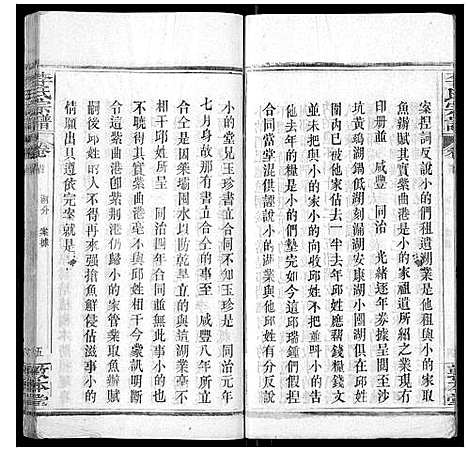 案捏詞反說小的們租遺湖業是他租與小的家取
魚辦賦其實紫曲港是小的家祖遺所紹之業現有
印冊並 咸豐 同治 光緒逐年券票呈案至于
坑黃鷄湖鍋低湖窈湖安康小國湖俱在大湖
圍內已被他家估去一半去年邱姓應幫錢糧錢文
並未把與小的家小的向收邱姓不把並呌小的去
他去年的是小的們墊完如今這邱瑞鍾們假捏
合同當堂混供誣說小的與他邱姓有分反說
小的堂兄玉珍書立合同不知玉珍是 同治元年
七月身故那有書立合仝的事至 咸豐八年所立
合仝的是因築壩囤水以助乾旱立的與這湖業毫不
相干邱姓所呈 同治四年合同並無此事小的
不曉得其實紫曲港毫不與邱姓相干今蒙訊明斷
令這紫曲港卽紫荆港仍歸小的家管業取魚辦賦
嗣後邱姓的人不得再來强搶魚鮮侵佔滋事小的
情願出具遵依完案就是
湖分 案據
五